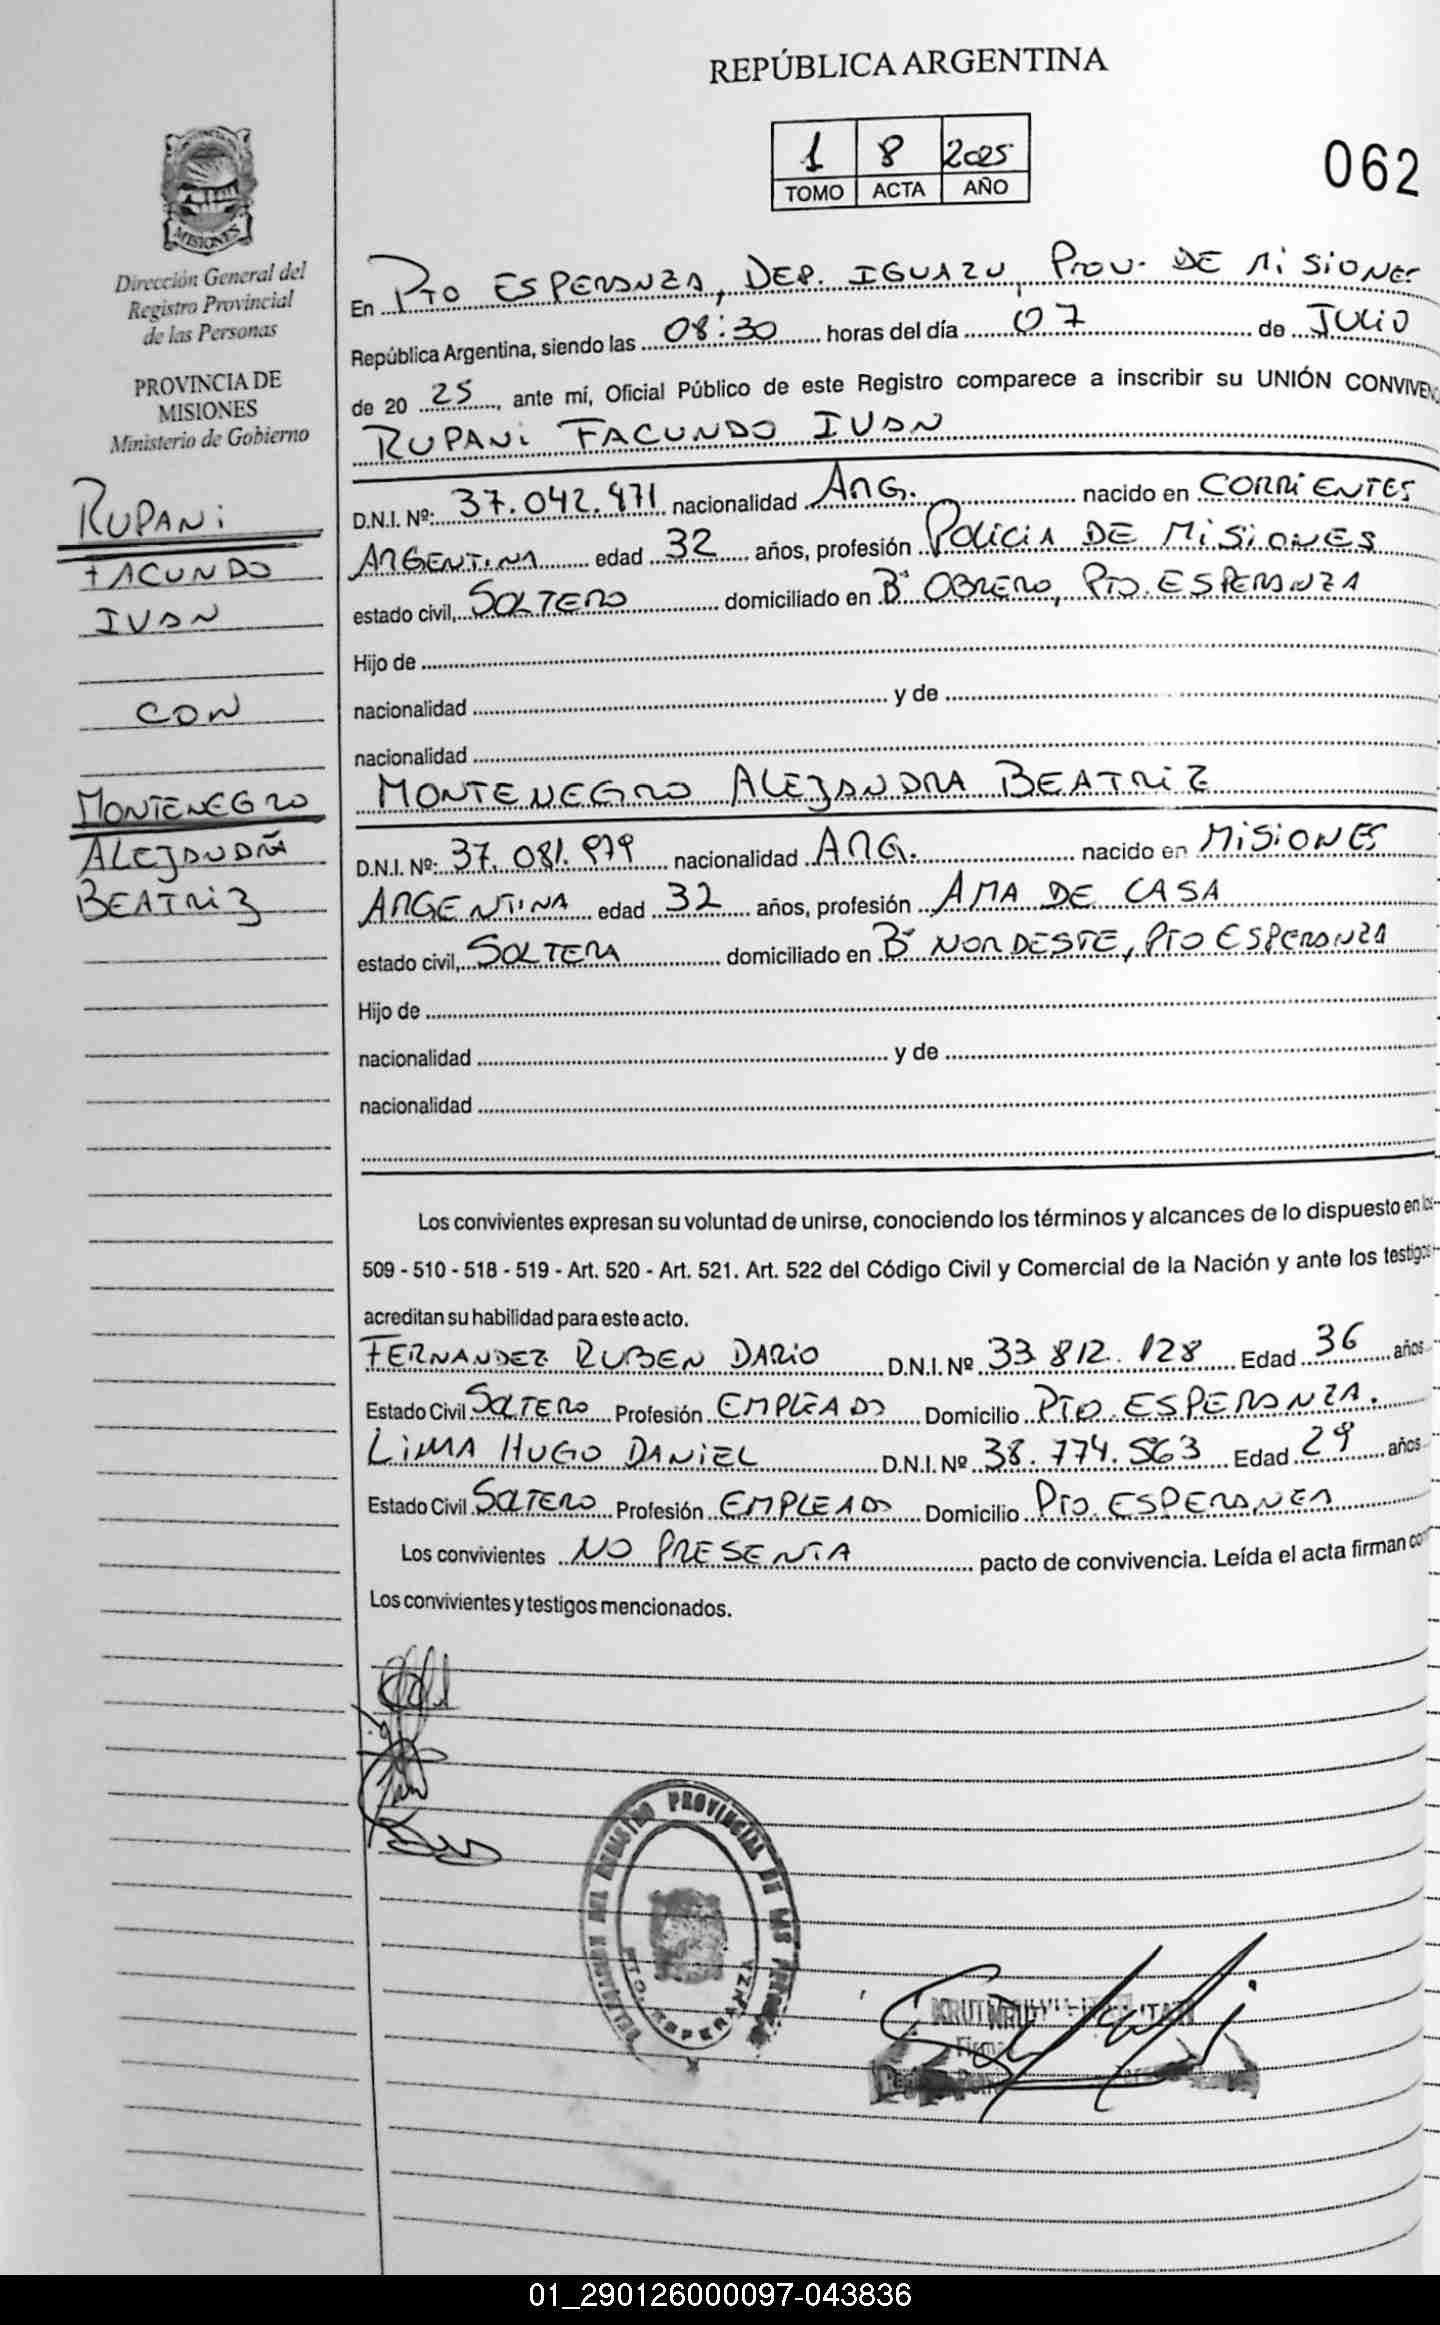 REPÚBLICA ARGENTINA
1 8 2025
TOMO ACTA AÑO
062
MISIONES
Dirección General del
Registro Provincial
de las Personas
PROVINCIA DE
MISIONES
Ministerio de Gobierno
RUPANI
FACUNDO
IVAN
CON
MONTENEGRO
ALEJANDRA
BEATRIZ
En PTO ESPERANZA, DEP. IGUAZU, PROV. DE MISIONES
República Argentina, siendo las 08:30 horas del día 07 de JULIO
de 20 25, ante mí, Oficial Público de este Registro comparece a inscribir su UNIÓN CONVIVENC
RUPANI FACUNDO IVAN
D.N.I. Nº: 37.042.471 nacionalidad ARG. nacido en CORRIENTES
ARGENTINA edad 32 años, profesión POLICIA DE MISIONES
estado civil, SOLTERO domiciliado en Bº OBRERO, PTO. ESPERANZA
Hijo de
nacionalidad y de
nacionalidad
MONTENEGRO ALEJANDRA BEATRIZ
D.N.I. Nº: 37.081.979 nacionalidad ARG. nacido en MISIONES
ARGENTINA edad 32 años, profesión AMA DE CASA
estado civil, SOLTERA domiciliado en Bº NORDESTE, PTO ESPERANZA
Hijo de
nacionalidad y de
nacionalidad
Los convivientes expresan su voluntad de unirse, conociendo los términos y alcances de lo dispuesto en los
509 - 510 - 518 - 519 - Art. 520 - Art. 521. Art. 522 del Código Civil y Comercial de la Nación y ante los testigos
acreditan su habilidad para este acto.
FERNANDEZ RUBEN DARIO D.N.I. Nº 33.812.128 Edad 36 años
Estado Civil SOLTERO Profesión EMPLEADO Domicilio PTO. ESPERANZA.
LIMA HUGO DANIEL D.N.I. Nº 38.774.563 Edad 29 años
Estado Civil SOLTERO Profesión EMPLEADO Domicilio PTO. ESPERANZA
Los convivientes NO PRESENTA pacto de convivencia. Leída el acta firman con
Los convivientes y testigos mencionados.
DEL REGISTRO PROVINCIAL DE LAS
PTO. ESPERANZA
01_290126000097-043836